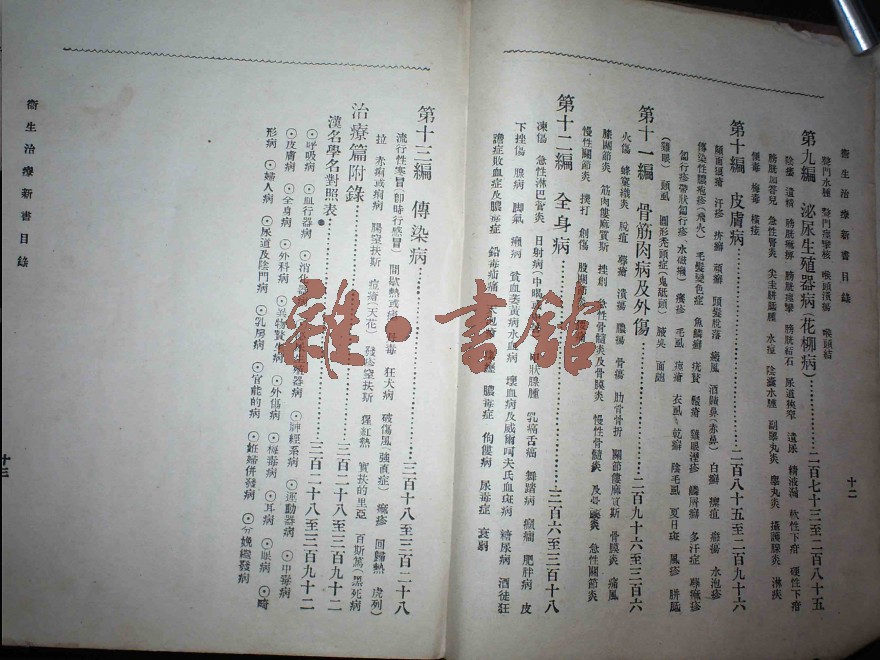 衞生治療新書目錄
十二
聲門水腫 聲門痙攣核 喉頭潰瘍 喉頭結
第九編 泌尿生殖器病(花柳病)……二百七十三至二百八十五
陰痿 遺精 膀胱痲痺 膀胱痙攣 膀胱結石 尿道狹窄 遺尿 精液漏 軟性下疳 硬性下疳
膀胱加答兒 急性腎炎 尖圭胼胝腫 水痘 陰囊水腫 副睾丸炎 睾丸炎 攝護腺炎 淋疾
便毒 梅毒 橫痃
第十編 皮膚病……二百八十五至二百九十六
顏面斑瘡 汗疹 疥癬 頑癬 頭髮脫落 癜風 酒皶鼻(赤鼻) 白癬 瘈疽 癤瘍 水泡疹
傳染性膿疱疹(飛火) 毛髮變色症 魚鱗癬 疣贅 鬚瘡 雞眼 溼疹 鱗屑癬 多汗症
匐行疹 帶狀匐行疹 水疱 毛虱 疱瘡 衣虱 乾癬 陰毛虱 夏日斑 風疹 胼胝
(雞眼) 頭虱 圓形禿頭症(鬼舐頭) 腋臭 面皰
第十一編 骨筋肉病及外傷……二百九十六至三百六
火傷 蜂窠織炎 脫疽 瘰癧 潰瘍 膿瘍 骨瘍 肋骨骨折 關節僂麻質斯 骨膜炎 痛風
膝關節炎 筋肉僂麻質斯 挫創 急性骨髓炎及骨膜炎 慢性骨髓炎 及骨瘍炎 急性關節炎
慢性關節炎 撲打 創傷 股關節
第十二編 全身病……三百六至三百十八
凍傷 急性淋巴管炎 日射病(中暍) 甲狀腺腫 乳癌舌癌 舞蹈病 癲癇 肥胖病 皮
下挫傷 腺病 脚氣 癩病 貧血萎黃病水血病 壞血病及威爾呵夫氏血斑病 糖尿病 酒徒狂
膿症敗血症及膿毒症 鉛毒疝痛 水疱瘡 膿毒症 佝僂病 尿毒症 衰弱
第十三編 傳染病……三百十八至三百二十八
流行性寒冒(卽時行感冒) 間歇熱或瘧 丹毒 狂犬病 破傷風强直症) 癜疹 回歸熱 虎列
拉 赤痢或痢病 腸窒扶斯 痘瘡(天花) 發疹窒扶斯 猩紅熱 實扶的里亞 百斯篤(黑死病
治療篇附錄……三百二十八至三百九十二
漢名學名對照表……三百二十八至三百九十二
⊙呼吸病 ⊙血行器病 ⊙消化 器病 ⊙神經系病 ⊙運動器病 ⊙中毒病
⊙皮膚病 ⊙全身病 ⊙外科病 ⊙異物竄入病 ⊙外傷病 ⊙梅毒病 ⊙耳病 ⊙眼病 ⊙畸
形病 ⊙婦人病 ⊙尿道及陰門病 ⊙乳房病 ⊙官能的病 ⊙姙婦併發病 ⊙分娩繼發病
衞生治療新書目錄
十三
雜·書館